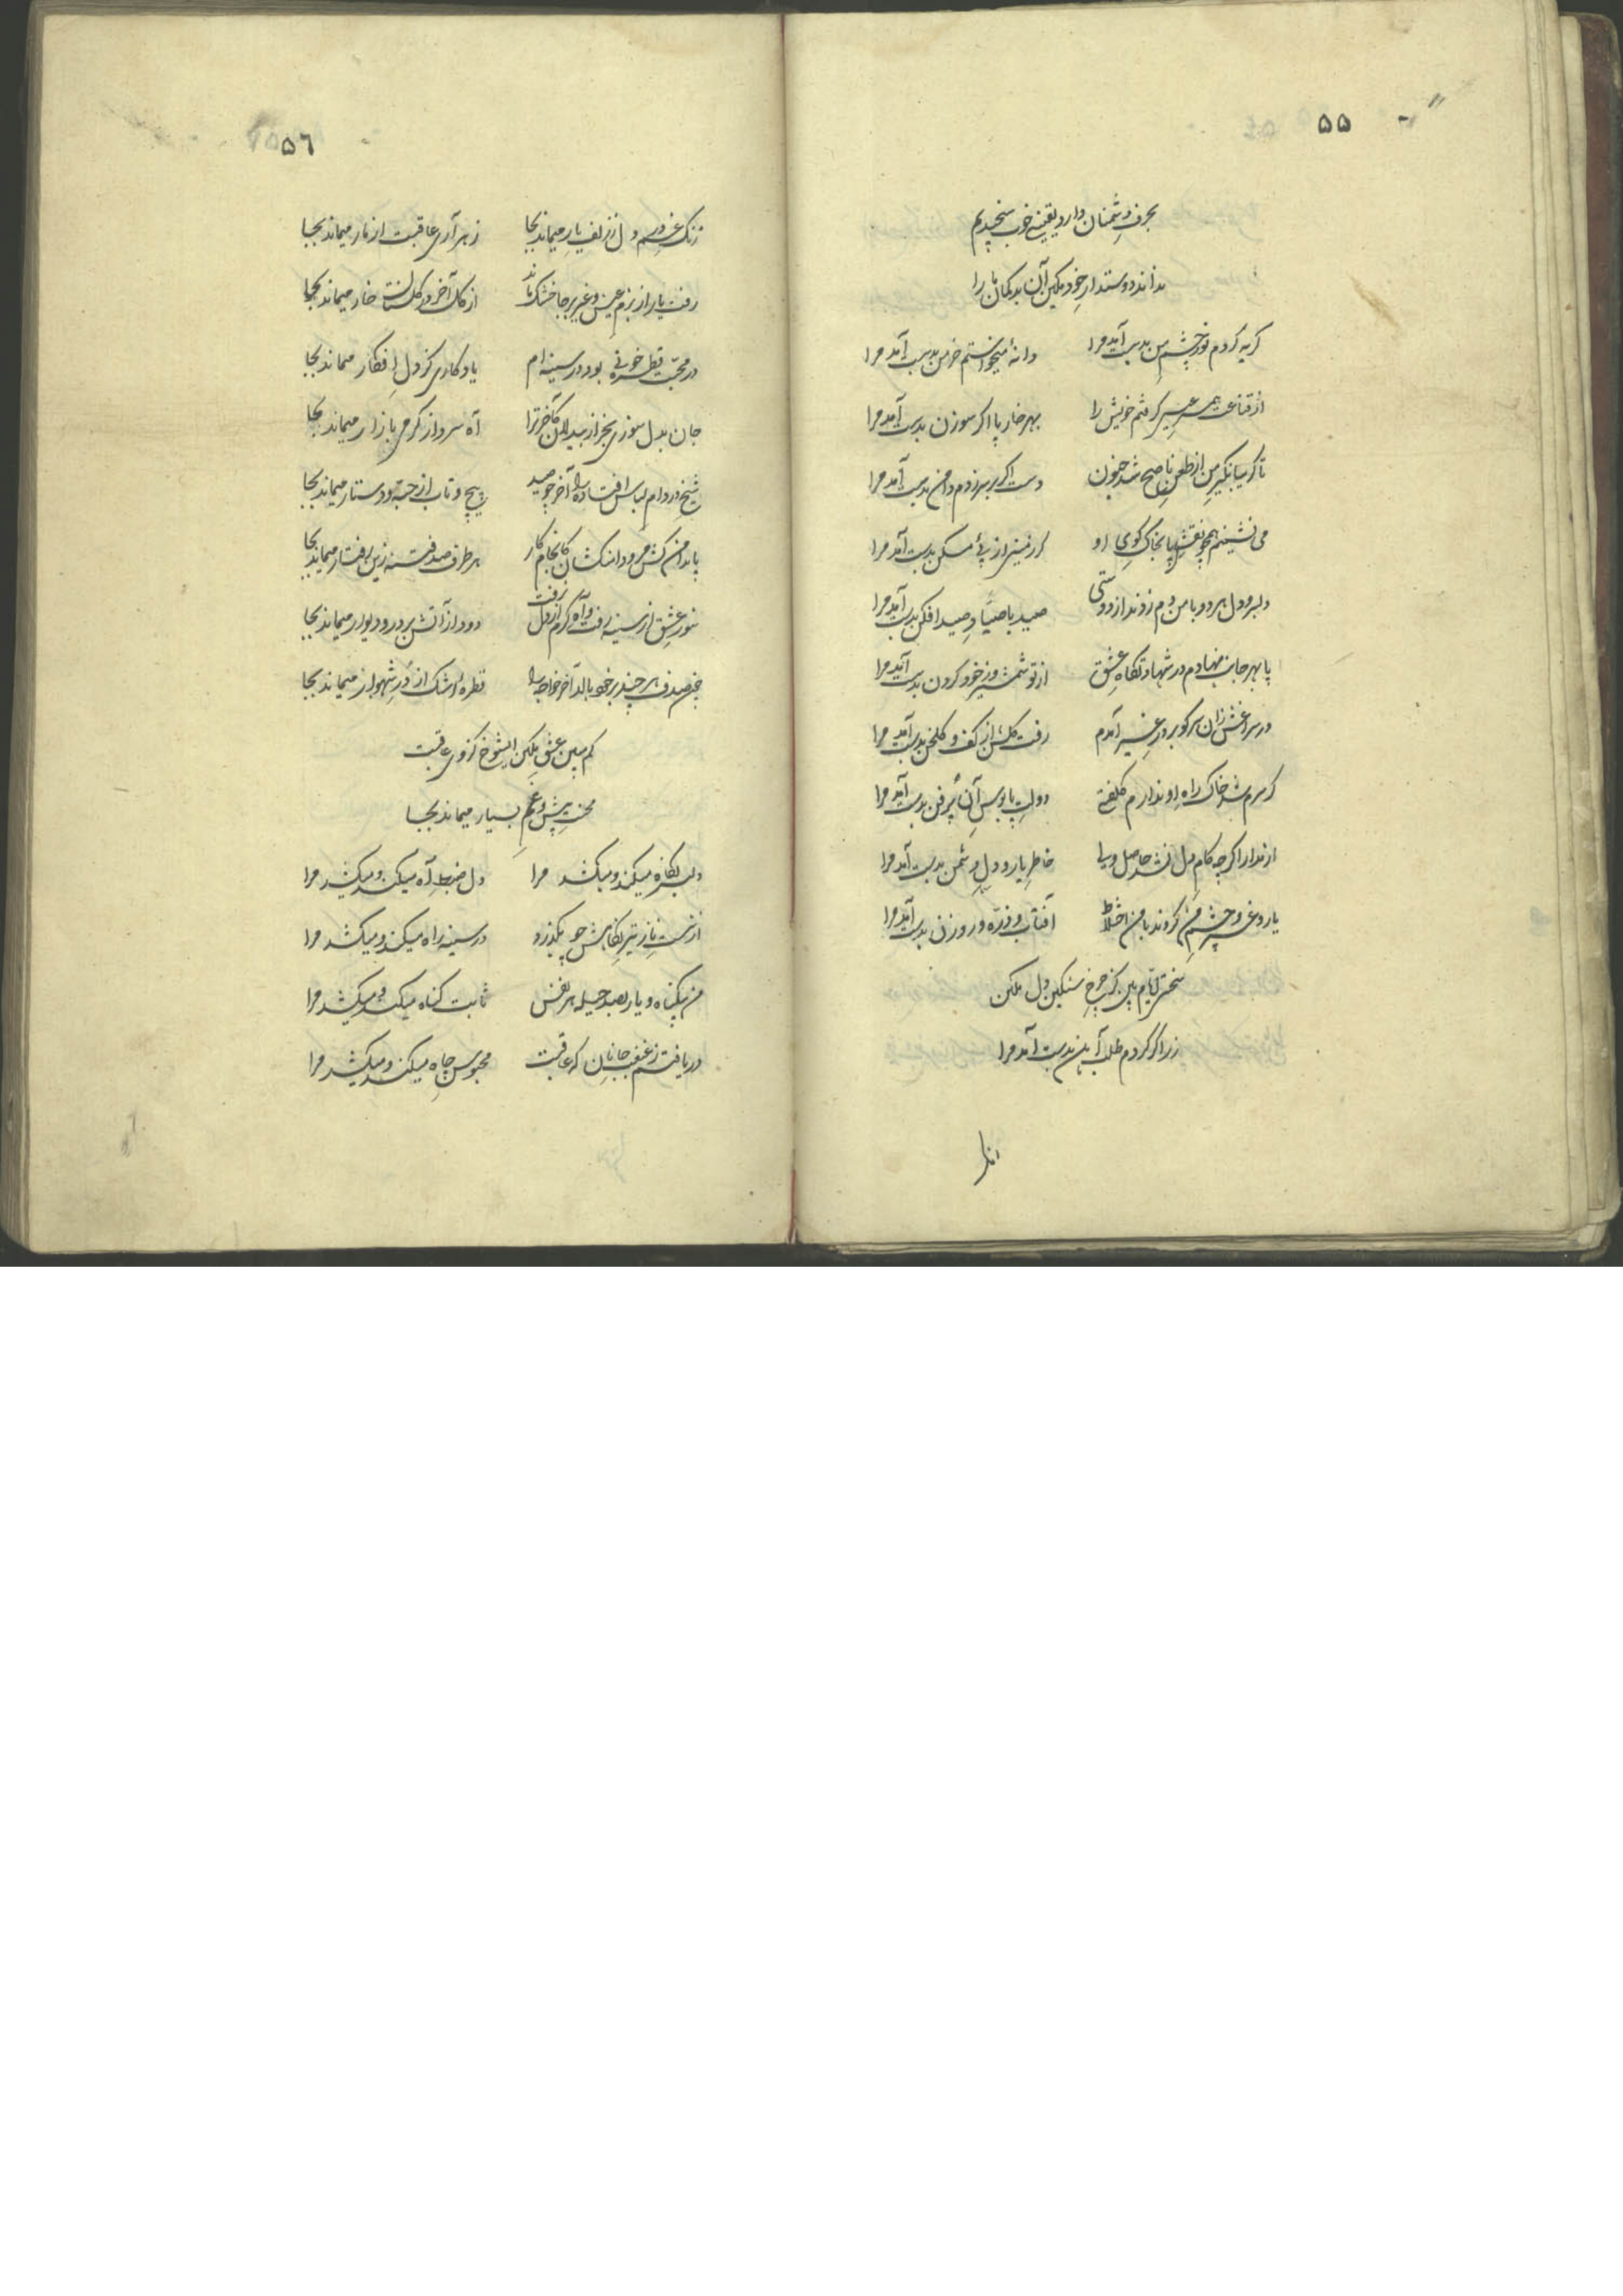 ۵۵
بحرف دشمنان دارد یقینی خوب سنجیدیم
نداند دوستدار خود مکین آن بدکمان ما را
کریه کردم نور چشم من بدست آمد مرا دانهٔ میخواستم خرمن بدست آمد مرا
از قناعت عیسی کرفتم خویش را بهر خار پا اکر سوزن بدست آمد مرا
تا کریبانکیر من از طعن ناصح شد جنون دست اکر بر سر زدم دامن بدست آمد مرا
می نشینم همچو نقش پا بخاک کوی او کر زمینی از پیٔ مسکن بدست آمد مرا
دلبر و دل هر دو با من دم زدند از دوستی صید با صیّاد صید افکن بدست آمد مرا
پا بهر جا نهادم در شهادتکاه عشق از تو شمشیر و ز خود کردن بدست آمد مرا
در سراغش زان سر کو بر در غیر آمدم رفت کلشن از کف و کلخن بدست آمد مرا
کر سرم شد خاک راه او ندارم کلفتی دولت پابوس آن پُر فن بدست آمد مرا
از مدارا کرچه کام دل نشد حاصل ولی خاطر یار و دل دشمن بدست آمد مرا
یار و غیر و چشم من کردند با من اختلاط آفتاب و ذرّه و روزن بدست آمد مرا
سختی ایّام بین کز چرخ سنکین دل مکین
زر اکر کردم طلب آهن بدست آمد مرا
۵٦
رنک غم در دل ز زلف یار میماند بجا زهر آری عاقبت از مار میماند بجا
رفت یار از بزم عیش و غیر بر جا خشک ماند از کل آخر در کلستان خار میماند بجا
در محبّت قطره خونی بود در سینه ام یادکاری کز دل افکار میماند بجا
جان بدل سوزی بخر از بیدلان کآخر ترا آه سرد از کرمی بازار میماند بجا
شیخ در دام لباس افتاده را آخر چو صید پیچ و تاب از جبّه و دستار میماند بجا
پا بدامن کش مرو دامنکشان کانجام کار هر طرف صد فتنه زین رفتار میماند بجا
سوز عشق از سینه رفت و آه کرم از دل نرفت دود از آتش بر در و دیوار میماند بجا
چون صدف هر چند بر خود بالد آخر خواجه را قطرهٔ اشک از دُر شهوار میماند بجا
کم مبین عشق مکین ایشوخ کز وی عاقبت
محنت بیش و غم بسیار میماند بجا
دلبر نکاه میکند و میکشد مرا دل ضبط آه میکند و میکشد مرا
از شست ناز تیر نکاهش چو بکذرد در سینه راه میکند و میکشد مرا
من بیکناه و یار بصد حیله هر نفس ثابت کناه میکند و میکشد مرا
دریافتم ز غبغب جانان که عاقبت محبوس چاه میکند و میکشد مرا